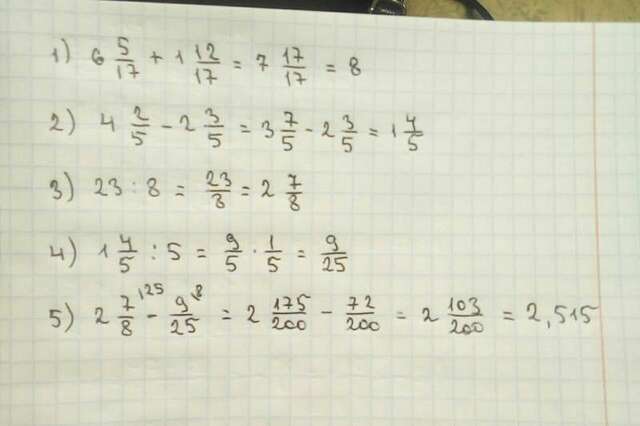 1) 6 5/17 + 1 12/17 = 7 17/17 = 8
2) 4 2/5 - 2 3/5 = 3 7/5 - 2 3/5 = 1 4/5
3) 23 : 8 = 23/8 = 2 7/8
4) 1 4/5 : 5 = 9/5 · 1/5 = 9/25
5) 2 7/8 ,25 - 9/25 8 = 2 175/200 - 72/200 = 2 103/200 = 2,515